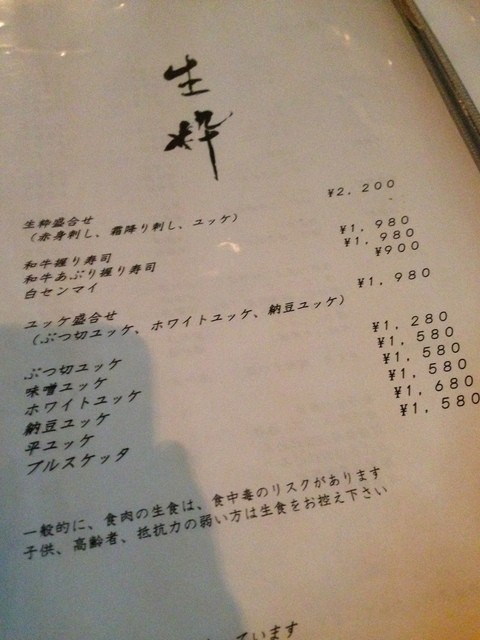 生粋
生粋盛合せ ¥2,200
（赤身刺し、霜降り刺し、ユッケ）
和牛握り寿司 ¥1,980
和牛あぶり握り寿司 ¥1,980
白センマイ ¥900
ユッケ盛合せ ¥1,980
（ぶつ切ユッケ、ホワイトユッケ、納豆ユッケ）
ぶつ切ユッケ ¥1,280
味噌ユッケ ¥1,580
ホワイトユッケ ¥1,580
納豆ユッケ ¥1,580
平ユッケ ¥1,680
ブルスケッタ ¥1,580
一般的に、食肉の生食は、食中毒のリスクがあります
子供、高齢者、抵抗力の弱い方は生食をお控え下さい
ています